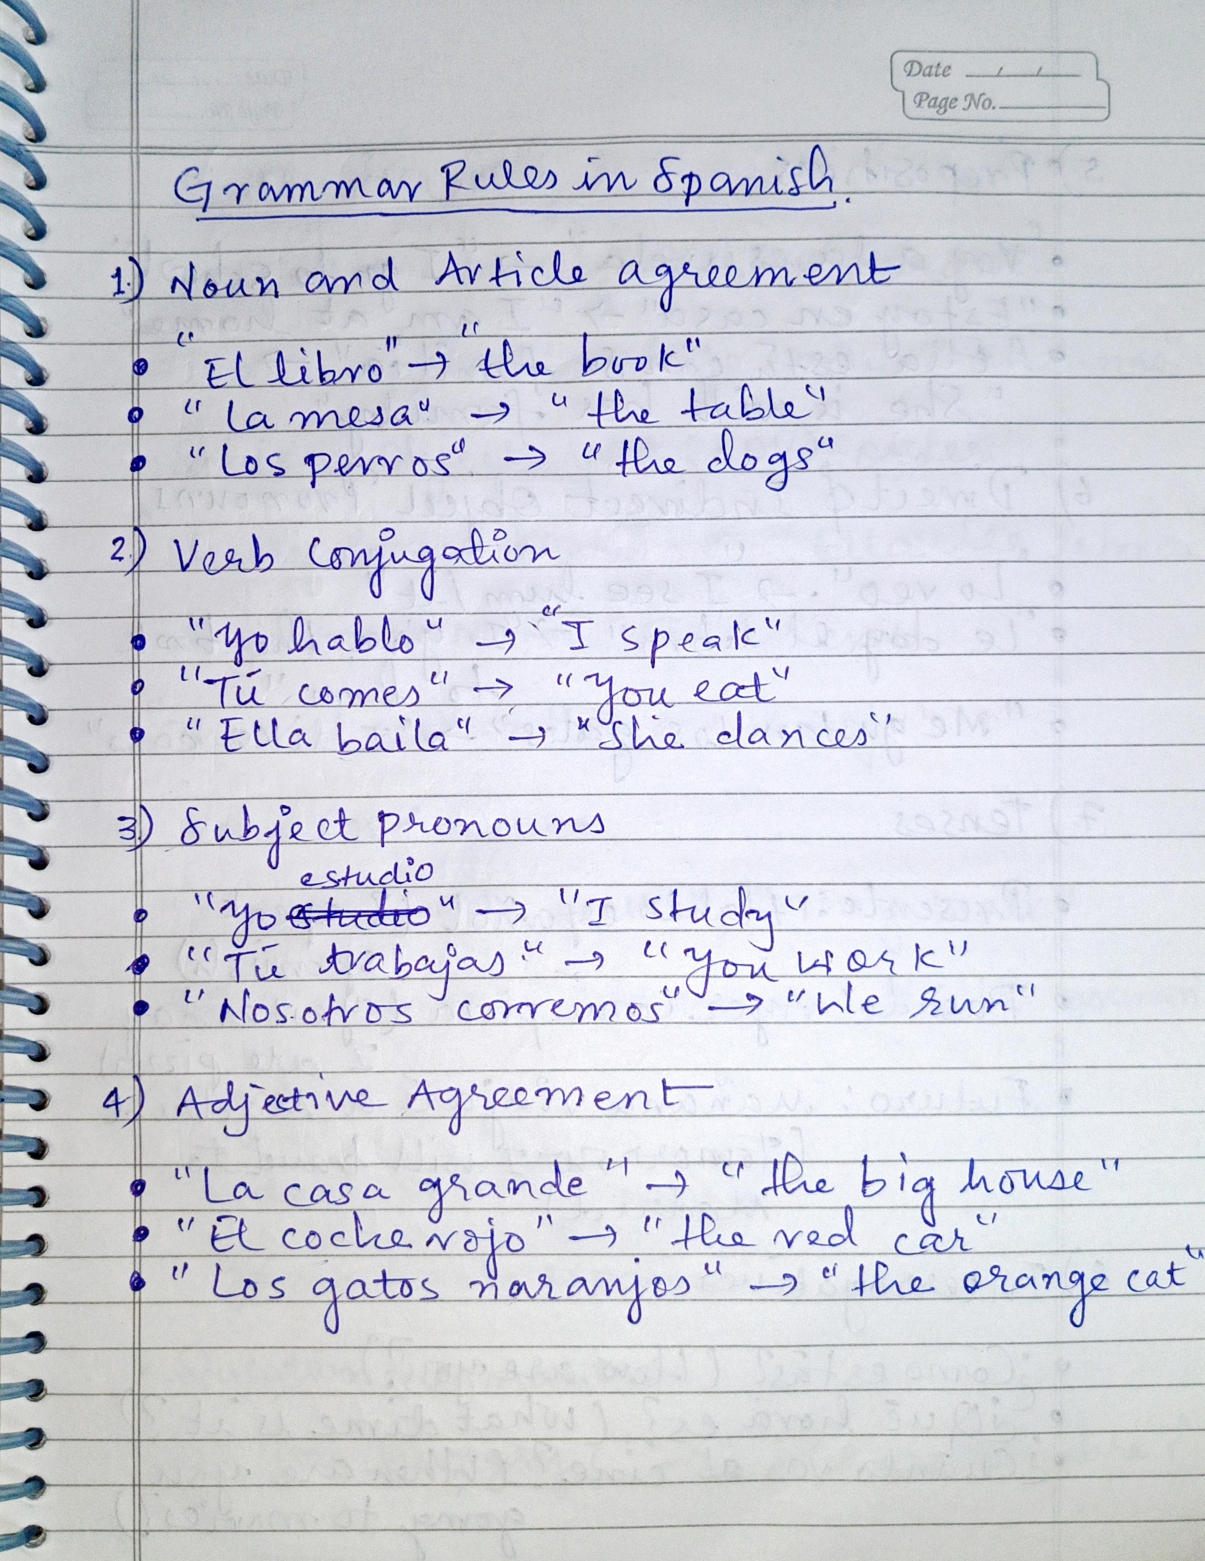 Date __/__/__
Page No.
Grammar Rules in Spanish.
1.) Noun and Article agreement
• "El libro" → "the book"
• "La mesa" → "the table"
• "Los perros" → "the dogs"
2.) Verb Conjugation
• "Yo hablo" → "I speak"
• "Tú comes" → "You eat"
• "Ella baila" → "She dances"
3.) Subject pronouns
estudio
• "Yo studio" → "I study"
• "Tú trabajas" → "You work"
• "Nosotros corremos" → "We run"
4.) Adjective Agreement
• "La casa grande" → "the big house"
• "El coche rojo" → "the red car"
• "Los gatos naranjos" → "the orange cat"